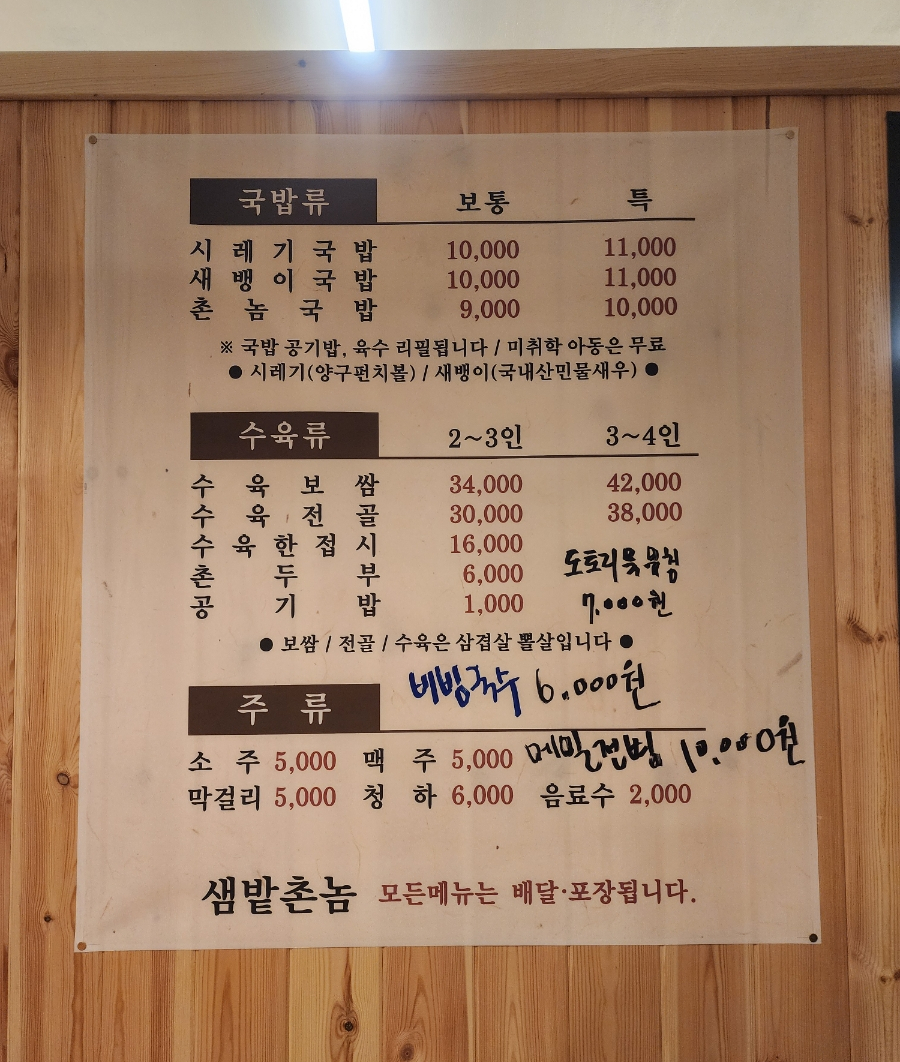 국밥류 보통 특
시레기국밥 10,000 11,000
새뱅이국밥 10,000 11,000
촌놈국밥 9,000 10,000
※ 국밥 공기밥, 육수 리필됩니다 / 미취학 아동은 무료
● 시레기(양구펀치볼) / 새뱅이(국내산민물새우) ●
수육류 2~3인 3~4인
수육보쌈 34,000 42,000
수육전골 30,000 38,000
수육한접시 16,000
도토리묵무침
촌두부 6,000
공기밥 1,000 7.000원
● 보쌈 / 전골 / 수육은 삼겹살 뽈살입니다 ●
비빔국수 6.000원
주류
소주 5,000 맥주 5,000 메밀전병 10.000원
막걸리 5,000 청하 6,000 음료수 2,000
샘밭촌놈 모든메뉴는 배달·포장됩니다.